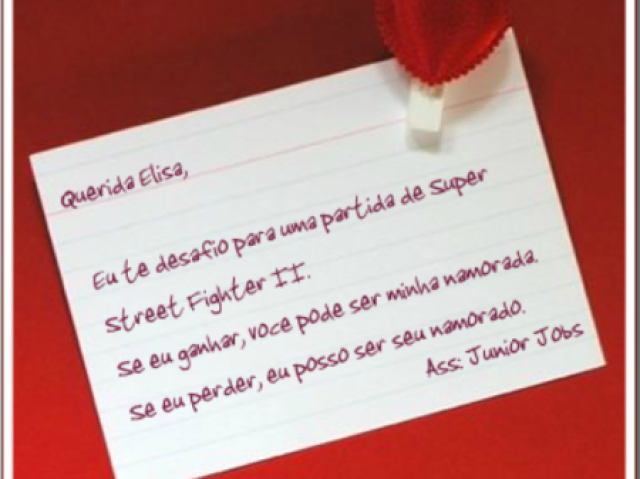 Querida Elisa,
Eu te desafio para uma partida de Super
Street Fighter II.
Se eu ganhar, voce pode ser minha namorada.
Se eu perder, eu posso ser seu namorado.
Ass: Junior Jobs